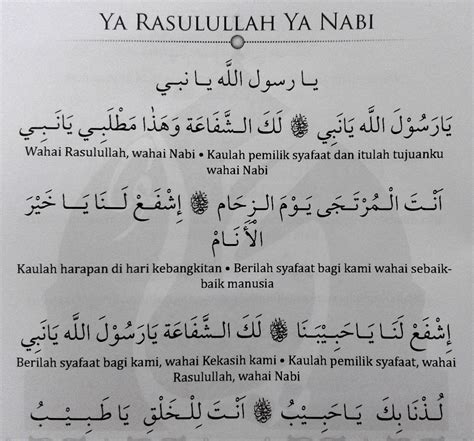 YA RASULULLAH YA NABI
يا رسول الله يا نبي
يَارَسُوْلَ اللَّه يَانَبِي ﷺ لَكَ الشَّفَاعَة وَهٰذَا مَطْلَبِي يَانَبِي
Wahai Rasulullah, wahai Nabi • Kaulah pemilik syafaat dan itulah tujuanku
wahai Nabi
اَنْتَ الْمُرْتَجَى يَوْمَ الزِحَام ﷺ إِشْفَعْ لَنَا يَا خَيْرَ
الْأَنَام
Kaulah harapan di hari kebangkitan • Berilah syafaat bagi kami wahai sebaik-
baik manusia
إِشْفَعْ لَنَا يَاحَبِيْبَنَا ﷺ لَكَ الشَّفَاعَة يَارَسُوْلَ اللَّه يَانَبِي
Berilah syafaat bagi kami, wahai Kekasih kami • Kaulah pemilik syafaat, wahai
Rasulullah, wahai Nabi
لُذْنَا بِكَ يَاحَبِيْبُ ﷺ اَنْتَ لِلْخَلْقِ يَا طَبِيْبُ